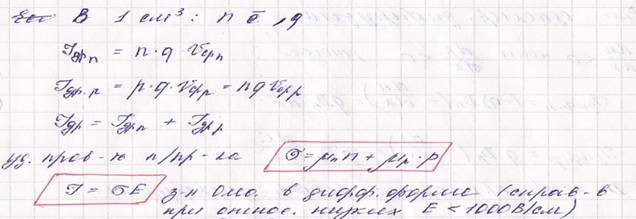 Если В 1 см³: n ē, q
Jдрn = n·q·Vдрn
Jдр.p = p·q·Vдрp = nqVдрp
Jдр = Jдрn + Jдрp
уд. пров-ть п/пр-ка σ = μn n + μp·p
J = σE з-н Ома в дифф. форме (справ-в
при относ. низких E < 1000 В/см)